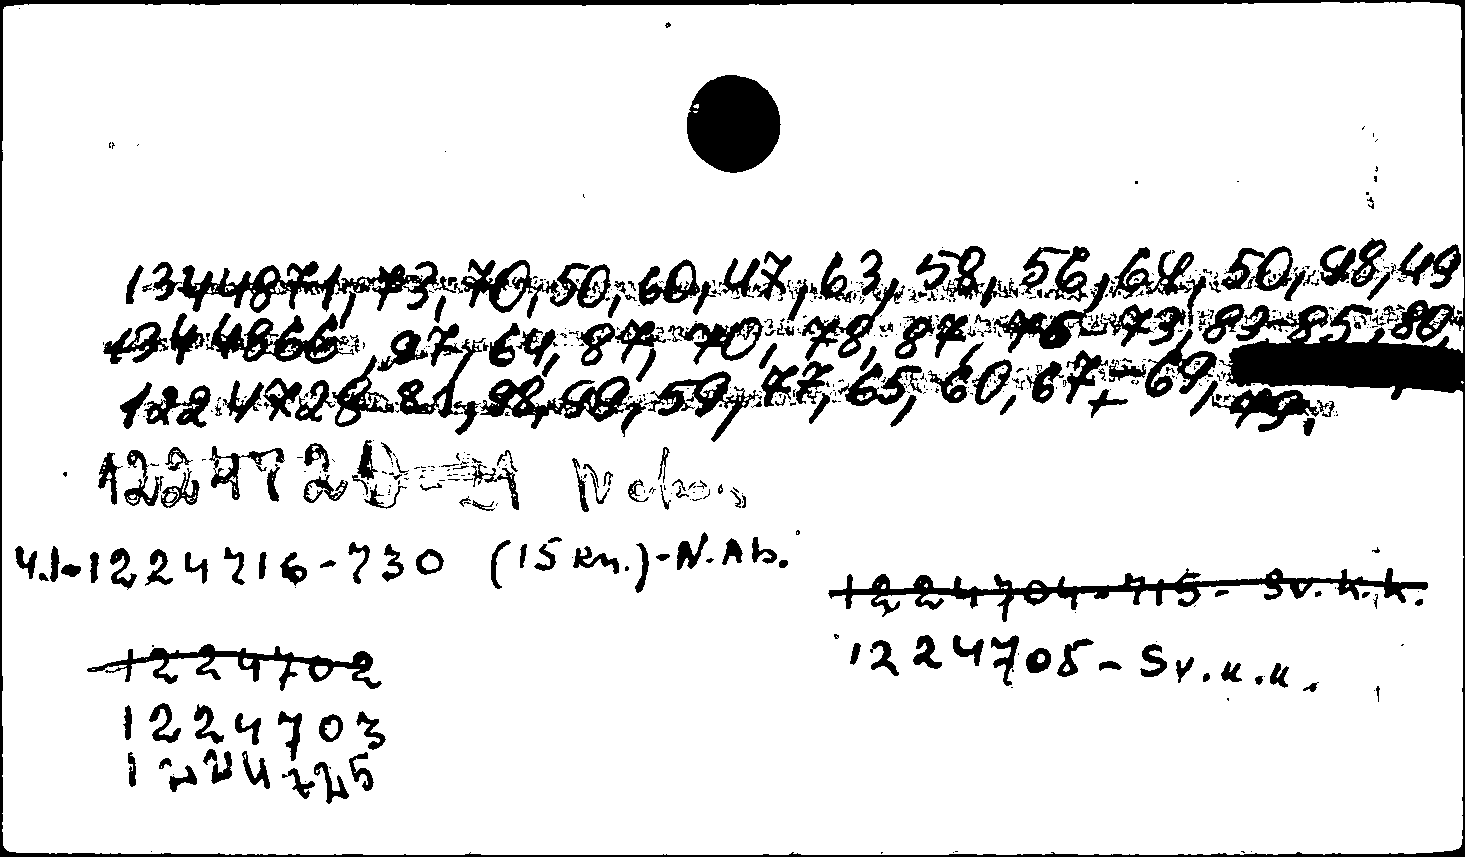 1344871, 73, 70, 50, 60, 47, 63, 58, 56, 64, 50, 48, 49
1344866, 97, 64, 87, 70, 78, 87, 76-73, 83-85, 80,
1224728-81, 98, 59, 77, 65, 60, 67-69, 79,
1224720-21
4.1-1224716-730 (15 kn.)-N.Ab.
1224704-715- Sv.k.k.
1224705- Sv.k.k.
1224702
1224703
1224725